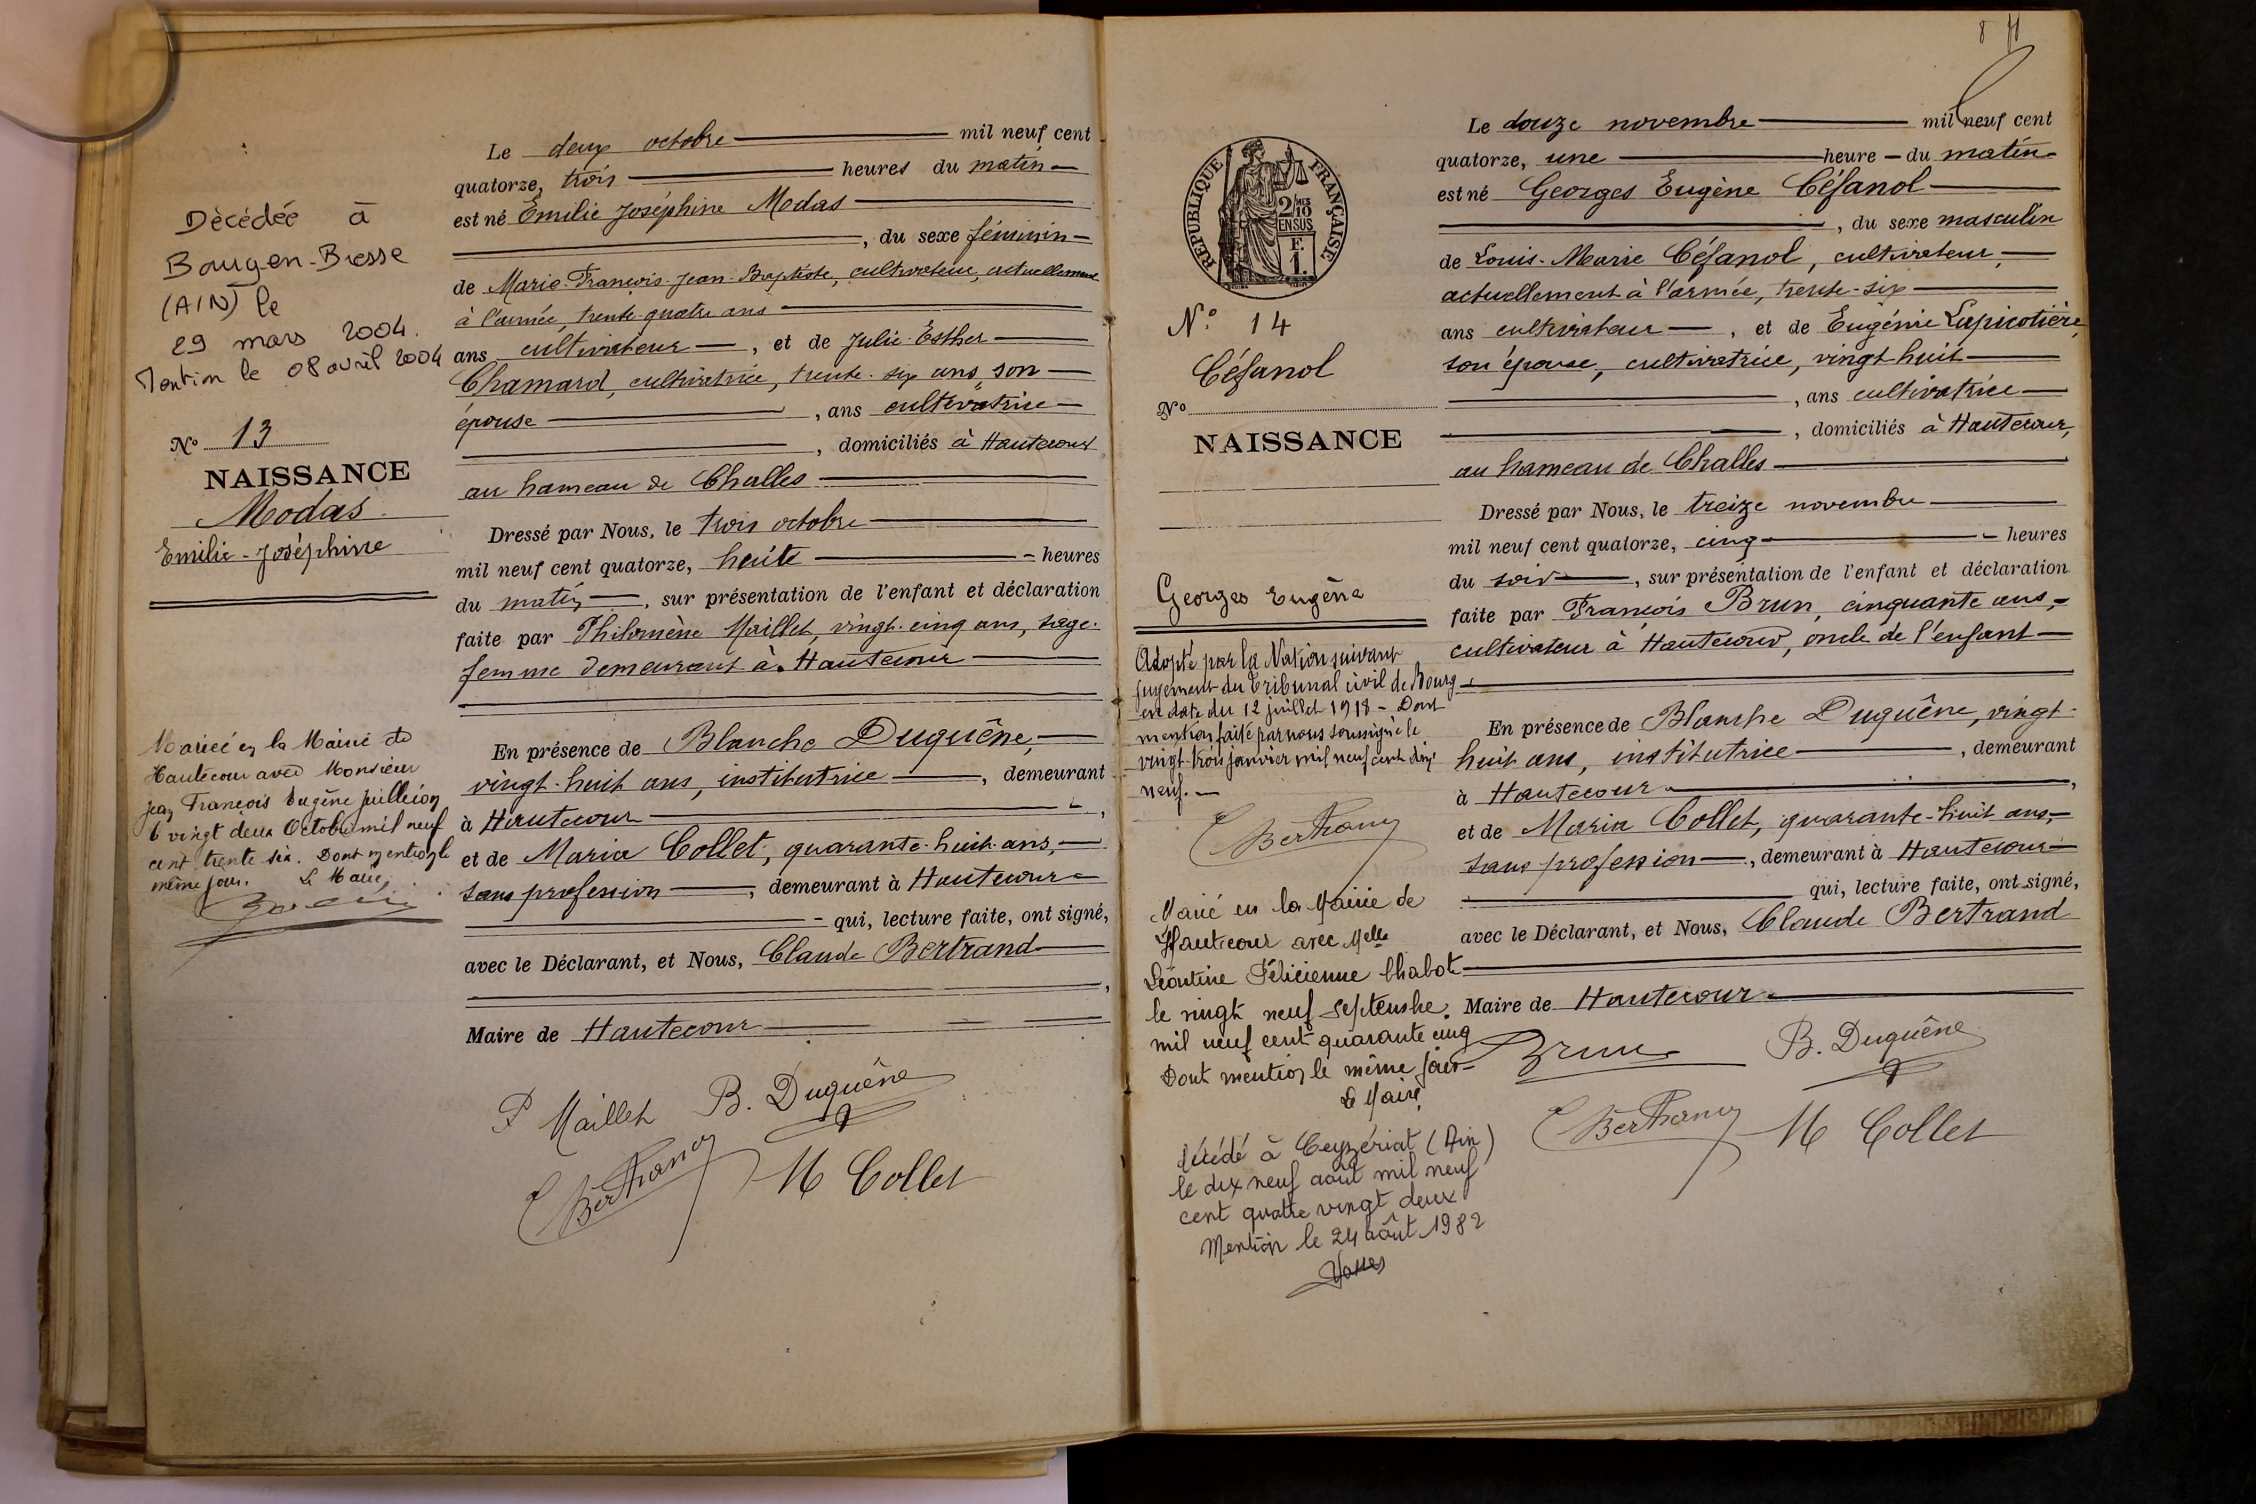 Le deux octobre mil neuf cent
quatorze, trois heures du matin
est né Emilie Joséphine Modas
, du sexe féminin
de Marie-François-Jean-Baptiste, cultivateur, actuellement
à l'armée, trente-quatre ans
ans cultivateur, et de Julie-Esther
Chamard, cultivatrice, trente-six ans, son
épouse, ans cultivatrice
, domiciliés à Hautecour
au hameau de Challes
Dressé par Nous, le trois octobre
mil neuf cent quatorze, huit heures
du matin, sur présentation de l'enfant et déclaration
faite par Philomène Maillet, vingt-cinq ans, sage-
femme demeurant à Hautecour
En présence de Blanche Duquêne,
vingt-huit ans, institutrice, demeurant
à Hautecour,
et de Maria Collet, quarante-huit ans,
sans profession, demeurant à Hautecour
qui, lecture faite, ont signé,
avec le Déclarant, et Nous, Claude Bertrand
,
Maire de Hautecour
P Maillet B. Duquêne
C Bertrand M Collet
Décédée à
Bourg-en-Bresse
(AIN) le
29 mars 2004.
Mention le 08 avril 2004
No 13
NAISSANCE
Modas
Emilie-Joséphine
Mariée en la Mairie de
Hautecour avec Monsieur
Jean François Eugène
le vingt deux Octobre mil neuf
cent trente six. Dont mention le
même jour. Le Maire,
8
REPUBLIQUE FRANÇAISE
2/10 EN SUS
F. 1.
N.° 14
Céfanol
No
NAISSANCE
Georges Eugène
Adopté par la Nation suivant
jugement du Tribunal civil de Bourg
en date du 12 juillet 1918 - Dont
mention faite par nous soussigné le
vingt-trois janvier mil neuf cent dix-
neuf.
C Bertrand
Marié en la Mairie de
Hautecour avec Melle
Léontine Félicienne Chabot
le vingt neuf septembre
mil neuf cent quarante cinq
Dont mention le même jour
Le Maire
Décédé à Ceyzériat (Ain)
le dix neuf août mil neuf
cent quatre vingt deux
Mention le 24 août 1982
Le douze novembre mil neuf cent
quatorze, une heure du matin
est né Georges Eugène Céfanol
, du sexe masculin
de Louis-Marie Céfanol, cultivateur,
actuellement à l'armée, trente-six
ans cultivateur, et de Eugénie Lapicotière
son épouse, cultivatrice, vingt huit
, ans cultivatrice
, domiciliés à Hautecour,
au hameau de Challes
Dressé par Nous, le treize novembre
mil neuf cent quatorze, cinq heures
du soir, sur présentation de l'enfant et déclaration
faite par François Brun, cinquante ans,
cultivateur à Hautecour, oncle de l'enfant
En présence de Blanche Duquêne, vingt-
huit ans, institutrice, demeurant
à Hautecour,
et de Maria Collet, quarante-huit ans,
sans profession, demeurant à Hautecour
qui, lecture faite, ont signé,
avec le Déclarant, et Nous, Claude Bertrand
Maire de Hautecour
Brun B. Duquêne
C Bertrand M Collet